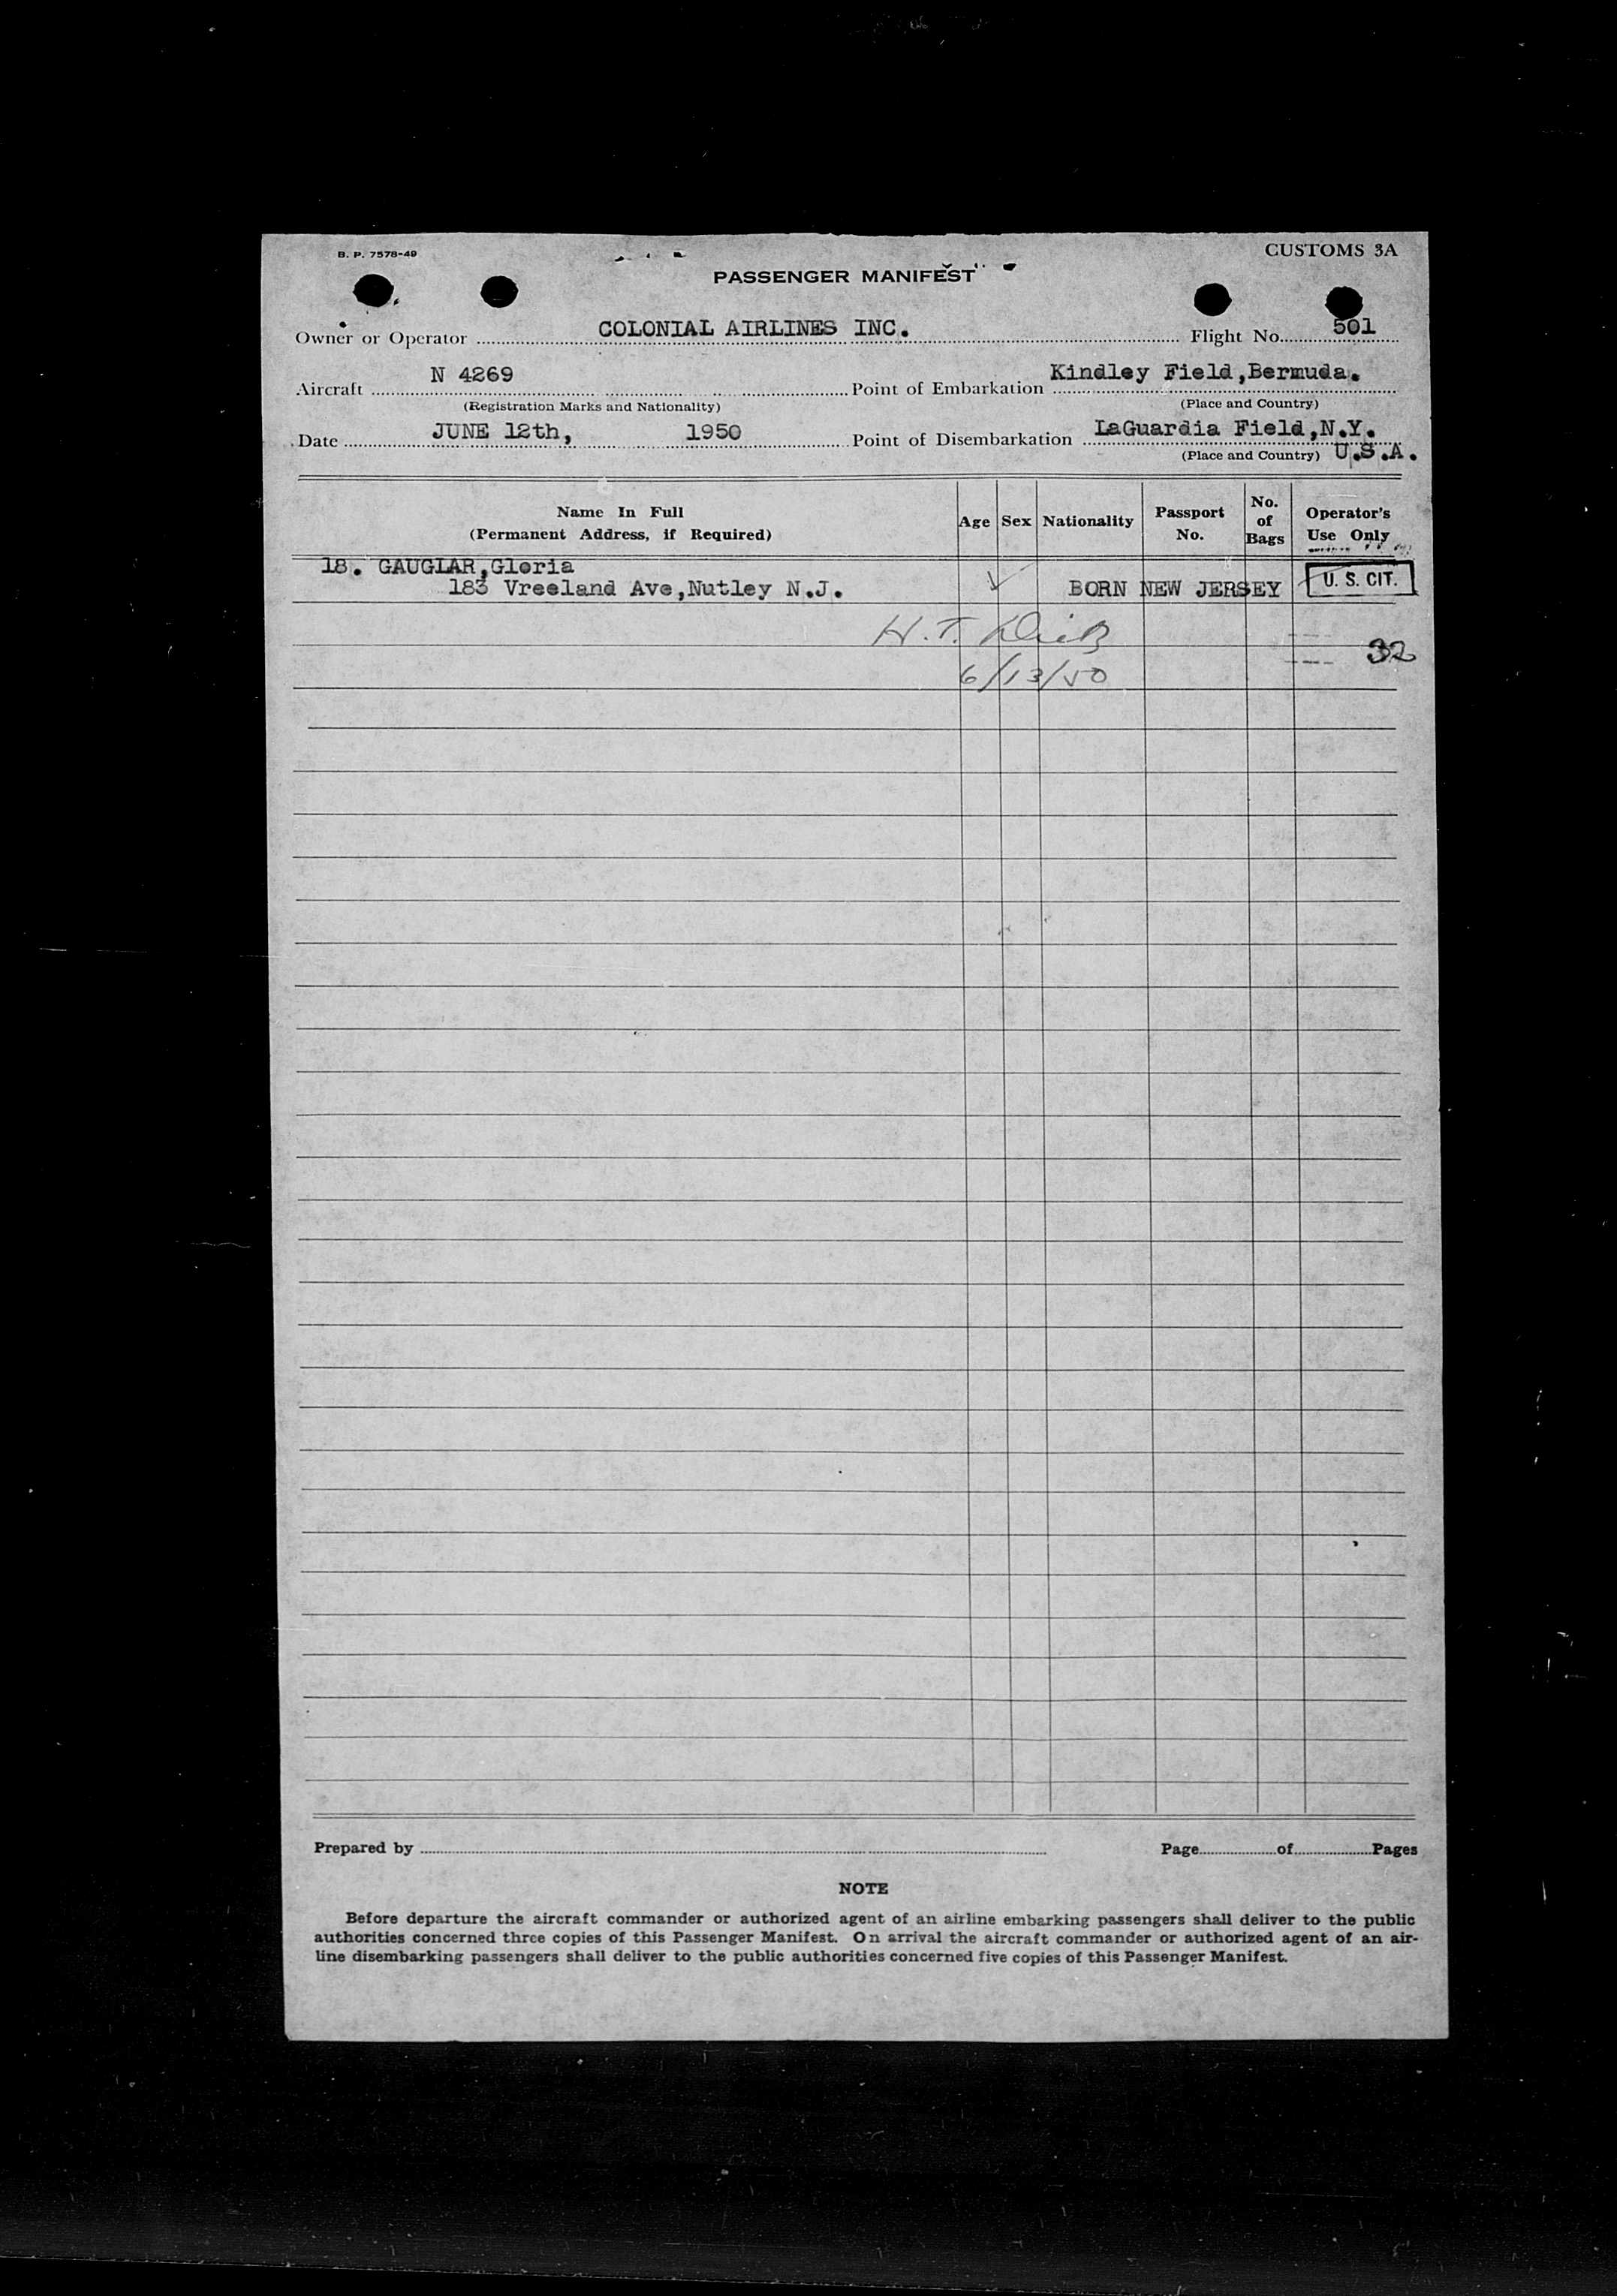 B. P. 7578-49
CUSTOMS 3A
PASSENGER MANIFEST
Owner or Operator COLONIAL AIRLINES INC. Flight No. 501
Aircraft N 4269 Point of Embarkation Kindley Field,Bermuda.
(Registration Marks and Nationality) (Place and Country)
Date JUNE 12th, 1950 Point of Disembarkation LaGuardia Field,N.Y.
(Place and Country) U.S.A.
Name In Full (Permanent Address, if Required) Age Sex Nationality Passport No. No. of Bags Operator's Use Only
18. GAUGLAR,Gloria
183 Vreeland Ave,Nutley N.J. BORN NEW JERSEY U. S. CIT.
H. T.
32
6/13/50
Prepared by Page of Pages
NOTE
Before departure the aircraft commander or authorized agent of an airline embarking passengers shall deliver to the public
authorities concerned three copies of this Passenger Manifest. On arrival the aircraft commander or authorized agent of an air-
line disembarking passengers shall deliver to the public authorities concerned five copies of this Passenger Manifest.